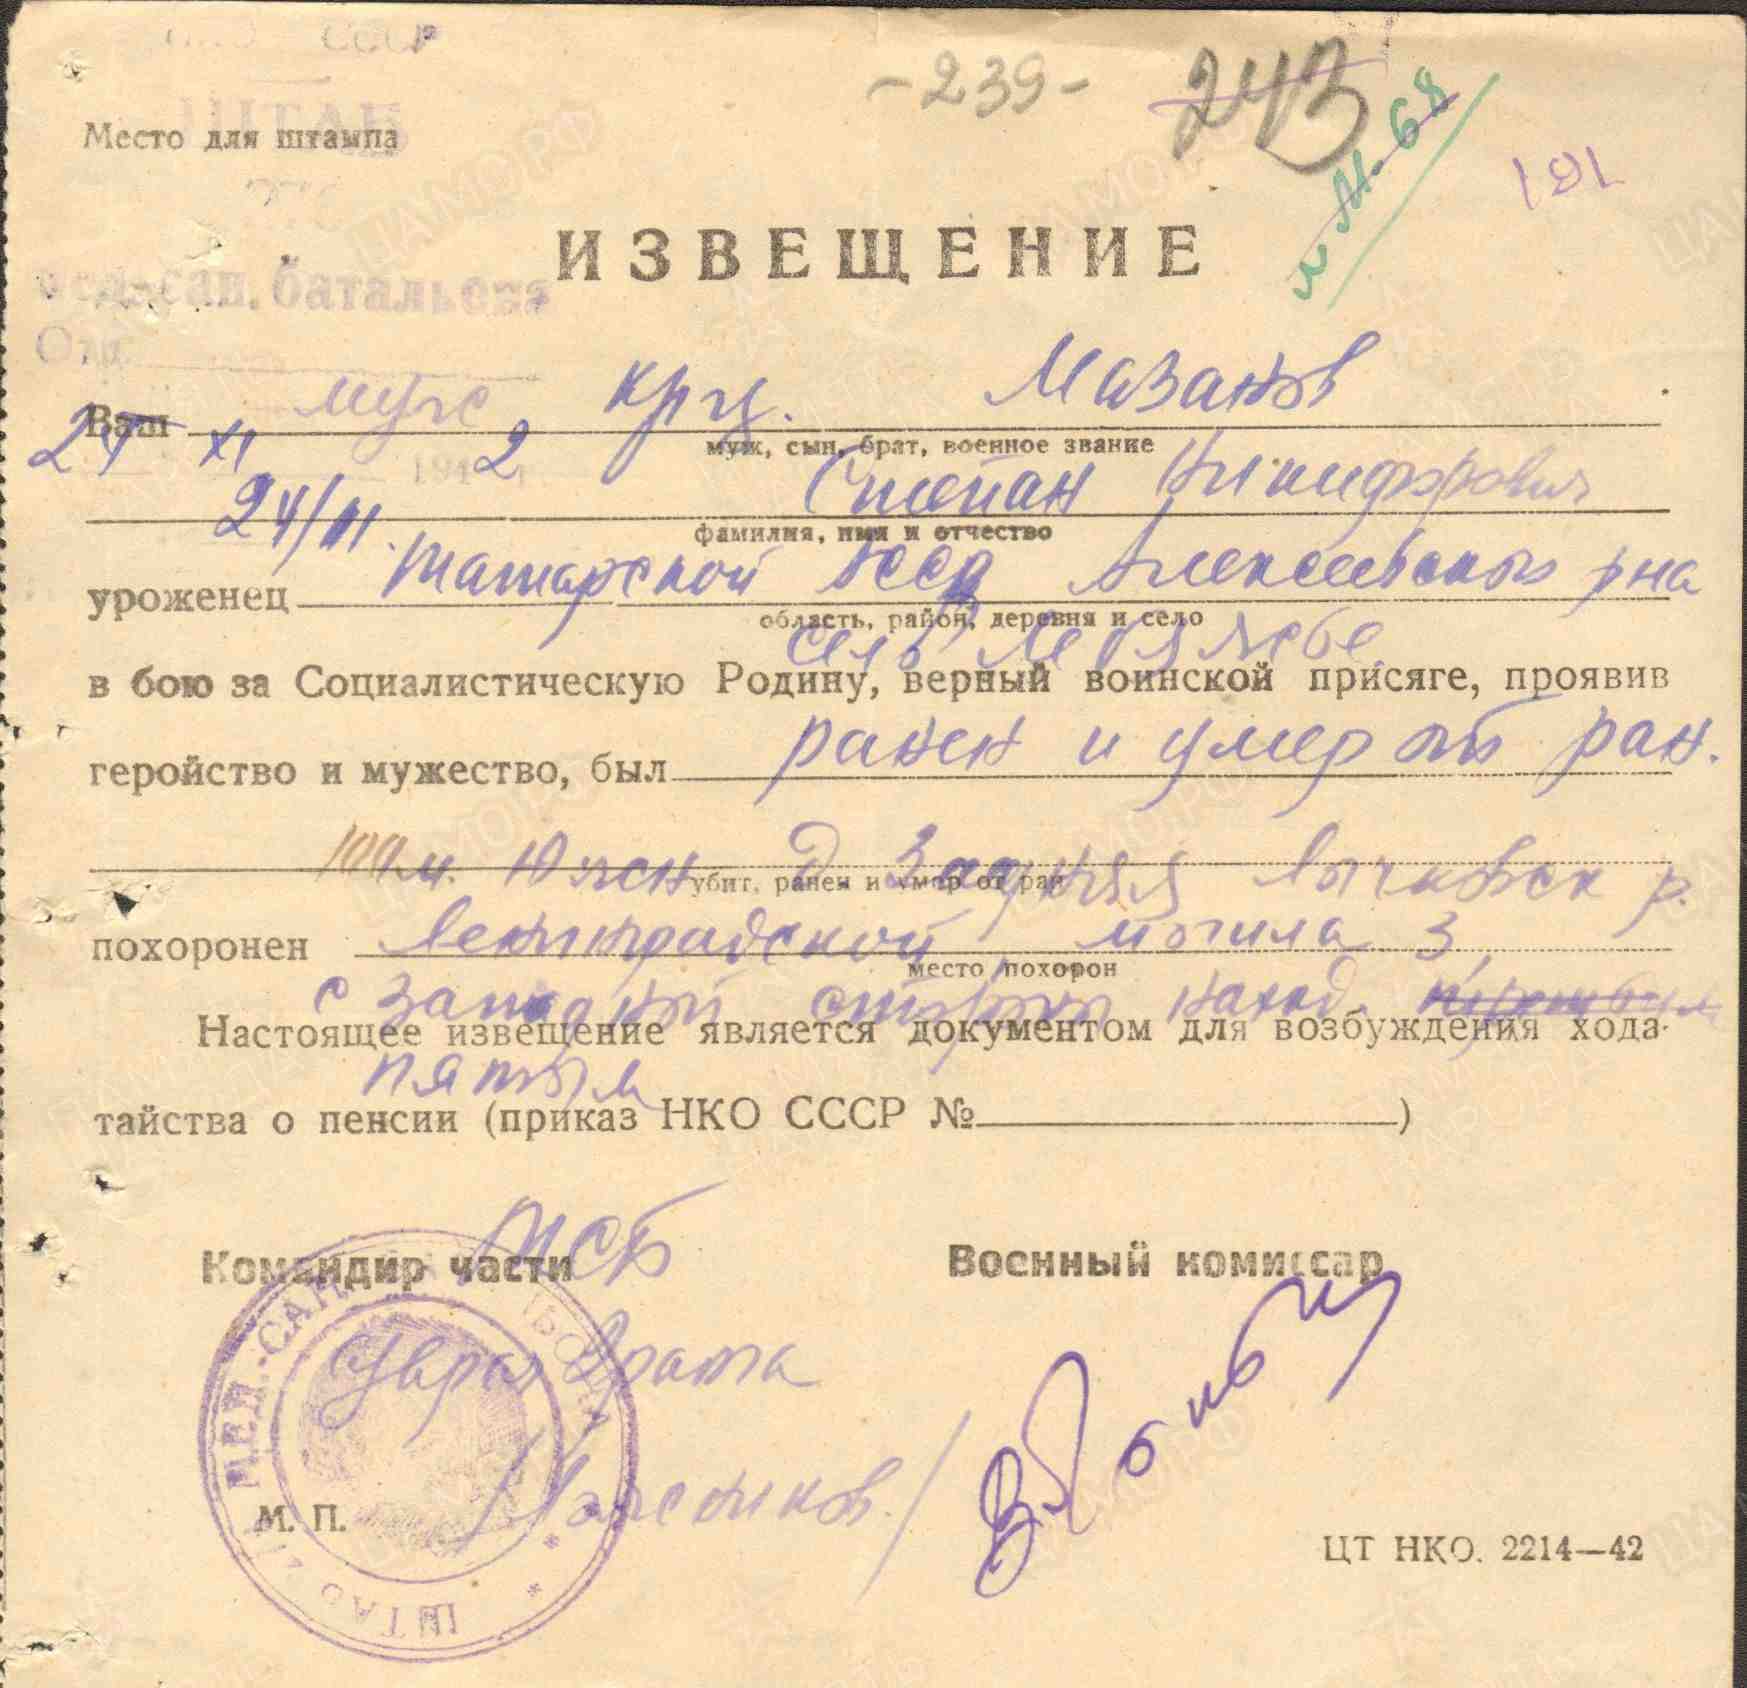 СССР
-239-
243
ШТАБ
Место для штампа
191
ИЗВЕЩЕНИЕ
мед-сан. батальона
Отд.
Ваш муж крц. Мазанов
муж, сын, брат, военное звание
24 XI 1942
Степан Никифорович
фамилия, имя и отчество
24/XI.
уроженец Татарской АССР Алексеевского рна
область, район, деревня и село
село
в бою за Социалистическую Родину, верный воинской присяге, проявив
геройство и мужество, был ранен и умер от ран.
100 м. Южн Д Задняя Лычковск р.
убит, ранен и умер от ран
похоронен Ленинградской могила 3
место похорон
с западной стороны наход.
Настоящее извещение является документом для возбуждения хода-
пятым
тайства о пенсии (приказ НКО СССР № )
Командир части МСБ
Военный комиссар
врача
МЕД.-САН. БАТАЛЬОНА
ШТАБ
М. П.
ЦТ НКО. 2214—42